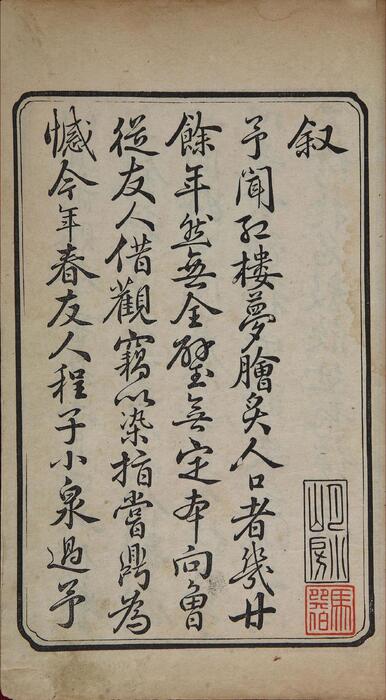 叙
予聞紅樓夢膾炙人口者幾廿
餘年然無全璧無定本向曾
從友人借觀竊以染指嘗鼎為
憾今年春友人程子小泉過予